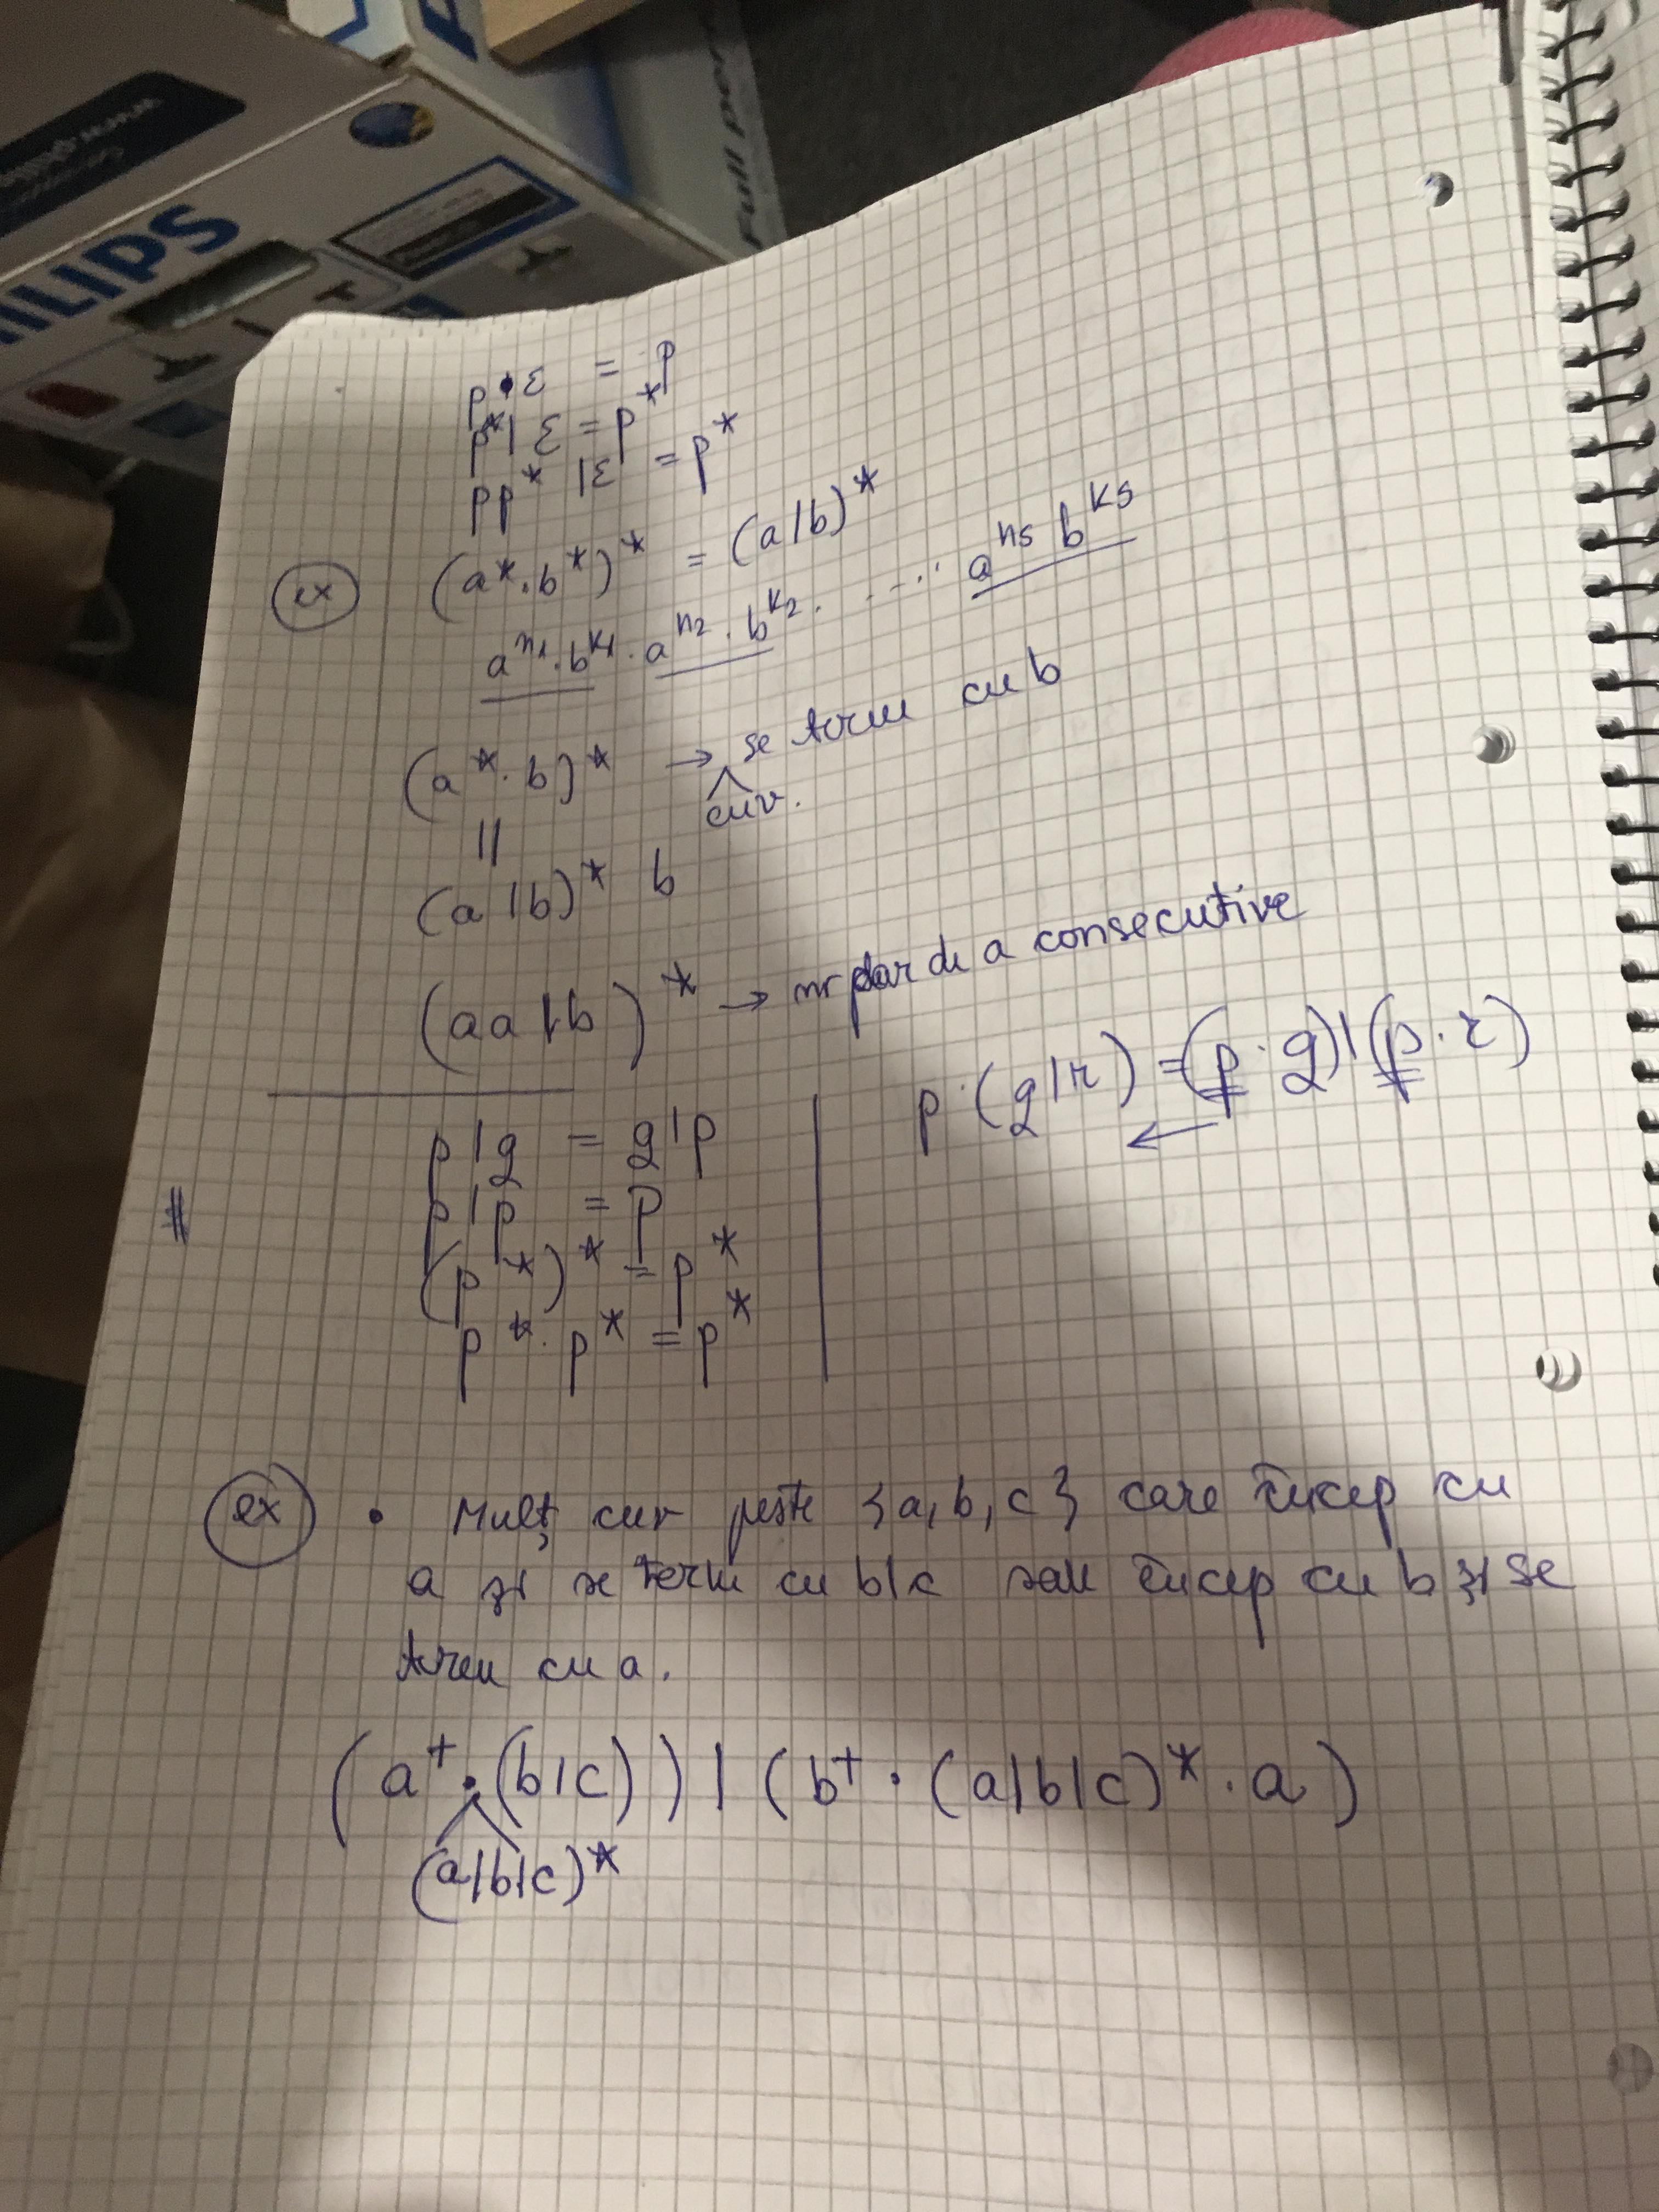 PHILIPS
Full per
p•ε = p
p*|ε = p*
pp* |ε = p*
ex (a*.b*)* = (a|b)*
a^n1.b^k1.a^n2.b^k2. ..... a^ns b^ks
(a*.b)* → se term cu b
cuv.
||
(a|b)* b
(aa|b)* → nr par de a consecutive
p.(q|r) = (p.q)|(p.r)
←
p|q = q|p
p|p = p
(p*)* = p*
p*.p* = p*
ex • Mulț cuv peste {a,b,c} care încep cu
a și se term cu b|c sau încep cu b și se
term cu a.
(a⁺•(b|c))|(b⁺•(a|b|c)*.a)
(a|b|c)*